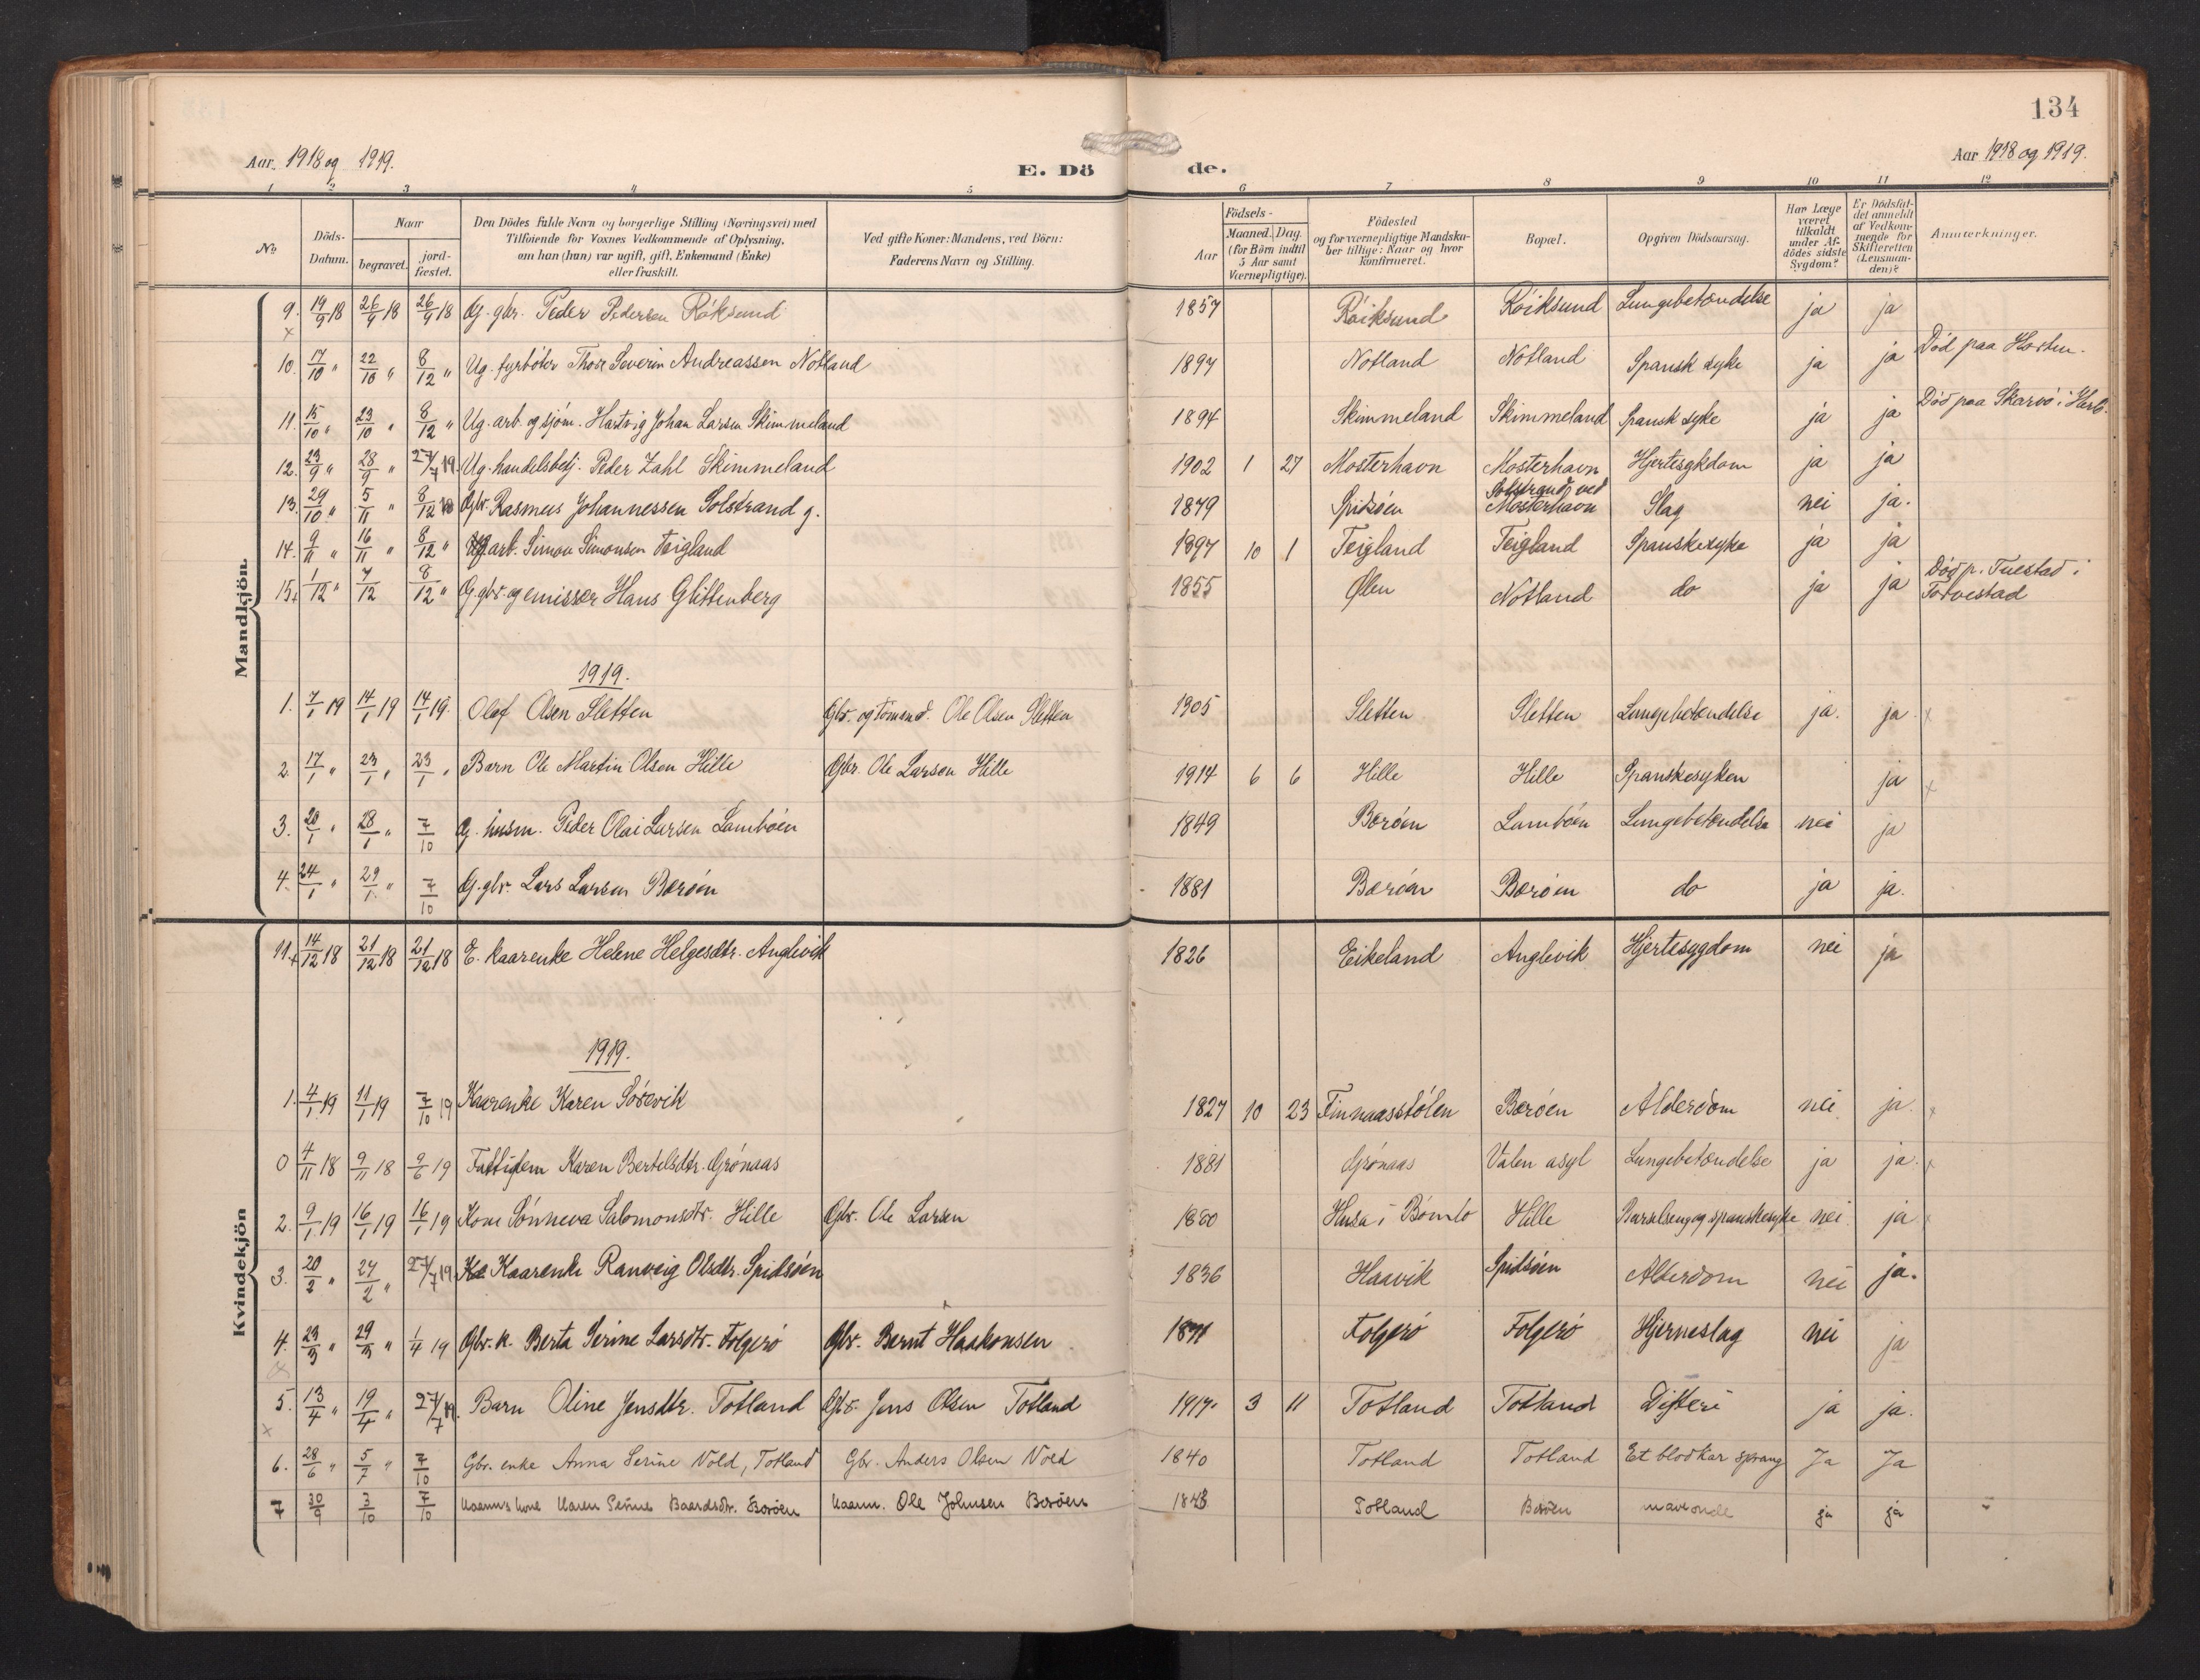 134
Aar 1918 og 1919.
E. Dö de.
Aar 1918 og 1919.
1 2 3 4 5 6 7 8 9 10 11 12
No.
Döds-Datum.
Naar
begravet.
jord-fæstet.
Den Dödes fulde Navn og borgerlige Stilling (Næringsvei) med
Tilföiende for Voxnes Vedkommende af Oplysning,
om han (hun) var ugift, gift, Enkemand (Enke)
eller fraskilt.
Ved gifte Koner: Mandens, ved Börn:
Faderens Navn og Stilling.
Födsels-
Aar
Maaned. Dag.
(for Börn indtil
5 Aar samt
Værnepligtige).
Födested
og for værnepligtige Mandska-
ber tillige: Naar og hvor
konfirmeret.
Bopæl.
Opgiven Dödsaarsag.
Har Læge
været
tilkaldt
under Af-
dödes sidste
Sygdom?
Er Dödsfal-
det anmeldt
af Vedkom-
mende for
Skifteretten
(Lensman-
den)?
Anmærkninger.
Mandkjön.
9. 19/9 18 26/9 18 26/9 18 G. gbr. Peder Pedersen Röksund 1857 Röiksund Röiksund Lungebetændelse ja ja
10. 17/10 " 22/10 " 8/12 " Ug. fyrböter Thore Severin Andreassen Notland 1897 Notland Notland Spansk syke ja ja Död paa Horten.
11. 15/10 " 23/10 " 8/12 " Ug. arb. og sjöm. Hartvig Johan Larsen Skimmeland 1894 Skimmeland Skimmeland Spansk syke ja ja Död paa Skarvö i
12. 23/9 " 28/9 " 27/7 19. Ug. handelsbetj. Peder Zahl Skimmeland 1902 1 27 Mosterhavn Mosterhavn Hjertesykdom ja ja
13. 29/10 " 5/11 " 8/12 Gbr. Rasmus Johannessen Solstrand g. 1879 Spidsöen Solstrand ved Mosterhavn Slag nei ja.
14. 9/11 " 16/11 " 8/12 " Ug arb. Simon Simonsen Teigland 1897 10 1 Teigland Teigland Spanskesyke ja ja
15. 1/12 " 7/12 8/12 " G. gbr. og emissær Hans Glittenberg 1855 Ølen Notland do ja ja Död p. Tuestad i Torvestad
1919.
1. 7/1 19 14/1 19 14/1 19. Olaf Olsen Sletten Gbr. og tömmd. Ole Olsen Sletten 1905 Sletten Sletten Lungebetændelse ja. ja. x
2. 17/1 " 23/1 " 23/1 " Barn Ole Martin Olsen Hille Gbr. Ole Larsen Hille 1914 6 6 Hille Hille Spanskesyken ja x
3. 20/1 " 28/1 " 7/10 G. husm. Peder Olai Larsen Lamböen 1849 Beröen Lamböen Lungebetændelse nei ja
4. 24/1 " 29/1 " 7/10 G. gbr. Lars Larsen Beröen 1881 Beröen Beröen do ja ja.
Kvindekjön
11. 14/12 18 21/12 18 21/12 18 E. kaarenke Helene Helgesdtr. Anglevik 1826 Eikeland Anglevik Hjertesygdom nei ja
1919.
1. 4/1 19 11/1 19 7/10 19 Kaarenke Karen Sörevik 1827 10 23 Finnaasstölen Beröen Alderdom nei ja. x
0 4/11 18 9/11 18 9/6 19 Fattiglem Karen Bertelsdtr. Grönaas 1881 Grönaas Valen asyl Lungebetændelse ja ja. x
2. 9/1 19 16/1 19 16/1 19 Kone Sönneva Salomonsdtr. Hille Gbr. Ole Larsen 1880 Husa i Bömlo Hille Barselseng og spanskesyke nei ja x
3. 20/2 " 27/2 " 27/7 19 Kaarenke Ranveig Olsdtr. Spidsöen 1836 Haavik Spidsöen Alderdom nei ja.
4. 23/3 " 29/3 " 1/4 19 Gbr. k. Berta Serine Larsdtr. Folgerö Gbr. Bernt Haakonsen 1871 Folgerö Folgerö Hjerneslag nei ja
5. 13/4 " 19/4 " 27/7 19. Barn Oline Jensdtr. Totland Gbr. Jens Olsen Totland 1917. 3 11 Totland Totland Difteri ja ja.
6. 28/6 " 5/7 " 7/10 Gbr. enke Anna Serine Vold, Totland Gbr. Anders Olsen Vold 1840 Totland Totland Et blodkar sprang Ja Ja
7 30/9 3/10 7/10 Kaarmds kone Karen Serine Baardsdtr. Beröen Kaarm. Ole Johnsen Beröen 1843 Totland Beröen maveonde ja ja